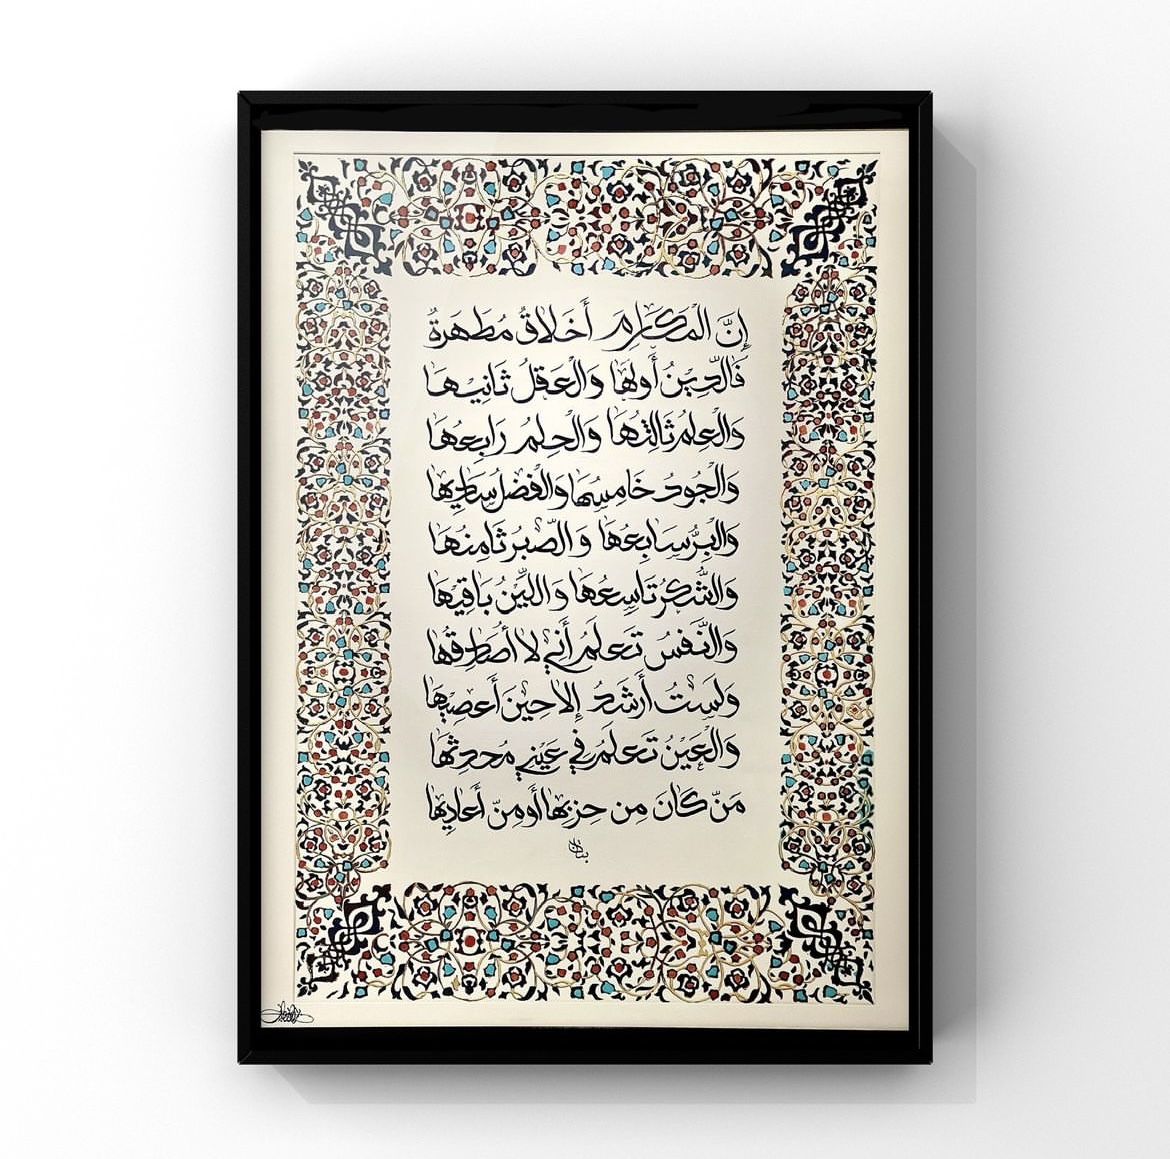 إِنَّ الْمَكَارِمِ أَخْلَاقٌ مُطَهَرَةٌ
فَالدِّينُ أَولهَا وَالْعَقلُ ثَانِيهَا
وَالْعِلمُ ثَالِثُهَا وَالْحِلمُ رَابِعُهَا
وَالْجُودُ خَامِسُهَا وَالْفَضلُ سَادِيهَا
وَالْبِرُّ سَابِعُهَا وَالصّبرُ ثَامِنُهَا
وَالشُّكرُ تَاسِعُهَا وَاللِّيّنُ بَاقِيهَا
وَالنَّفسُ تَعلَمُ أَنّي لا أُصَادِقُهَا
وَلَستُ أَرشَدُ إِلا حِينَ أَعصِيهَا
وَالْعَينُ تَعلَمُ في عَينَي مُحَدِثِهَا
مَنّ كَانَ مِن حِزبِهَا أَو مِنّ أَعَادِيهَا